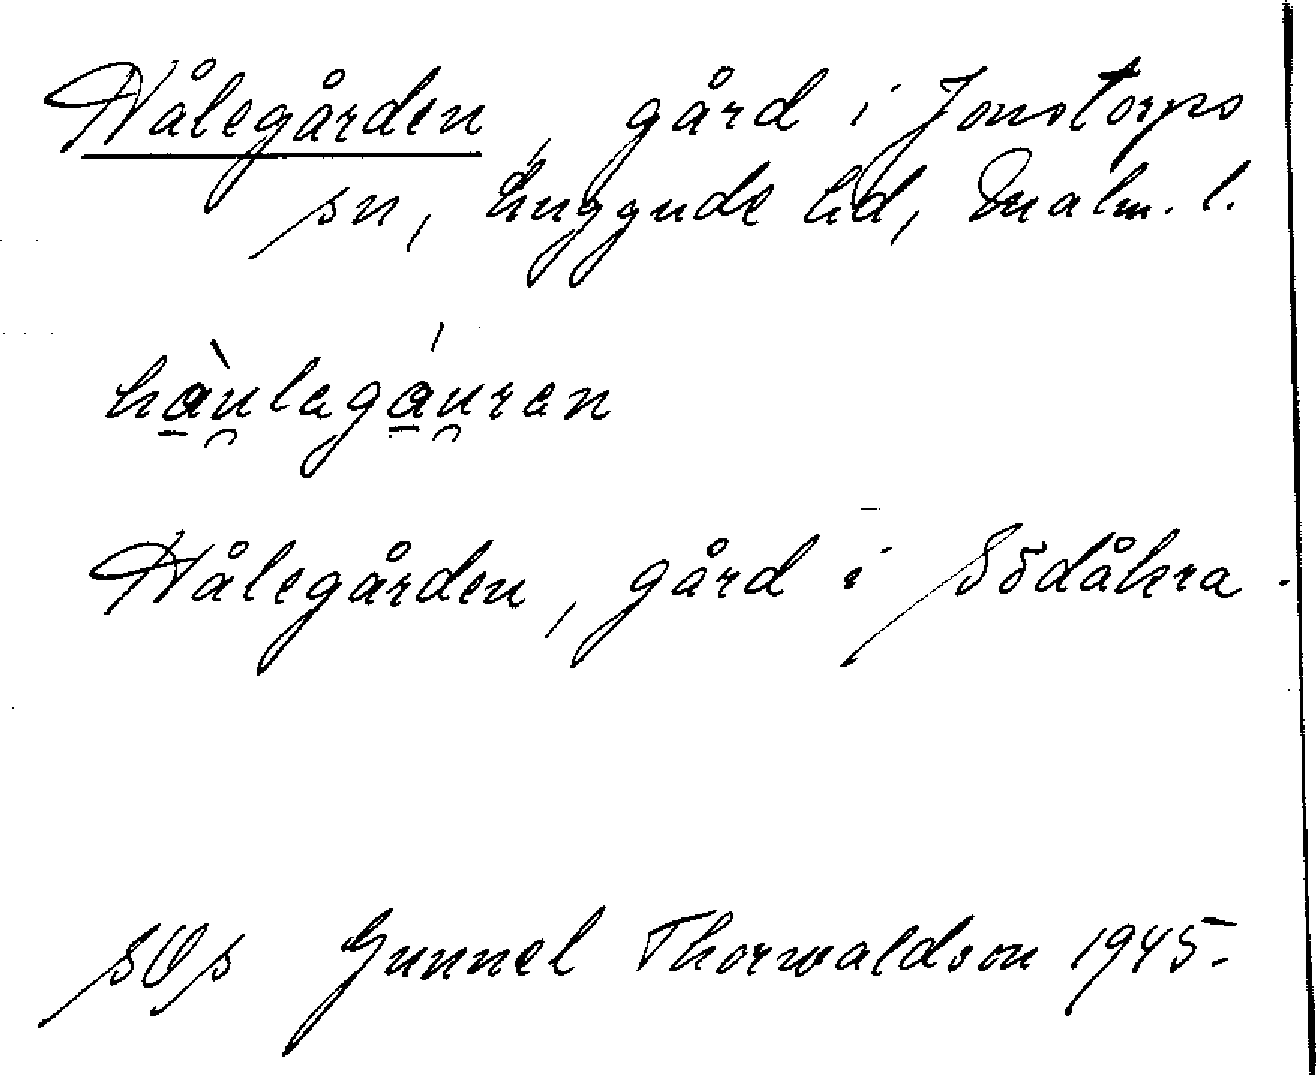 Hålegården, gård i Jonstorps
sn, Luggude hd, Malm. l.
hàu̯legáu̯ren
Hålegården, gård i Södåkra.
Gunnel Thorwaldson 1945.